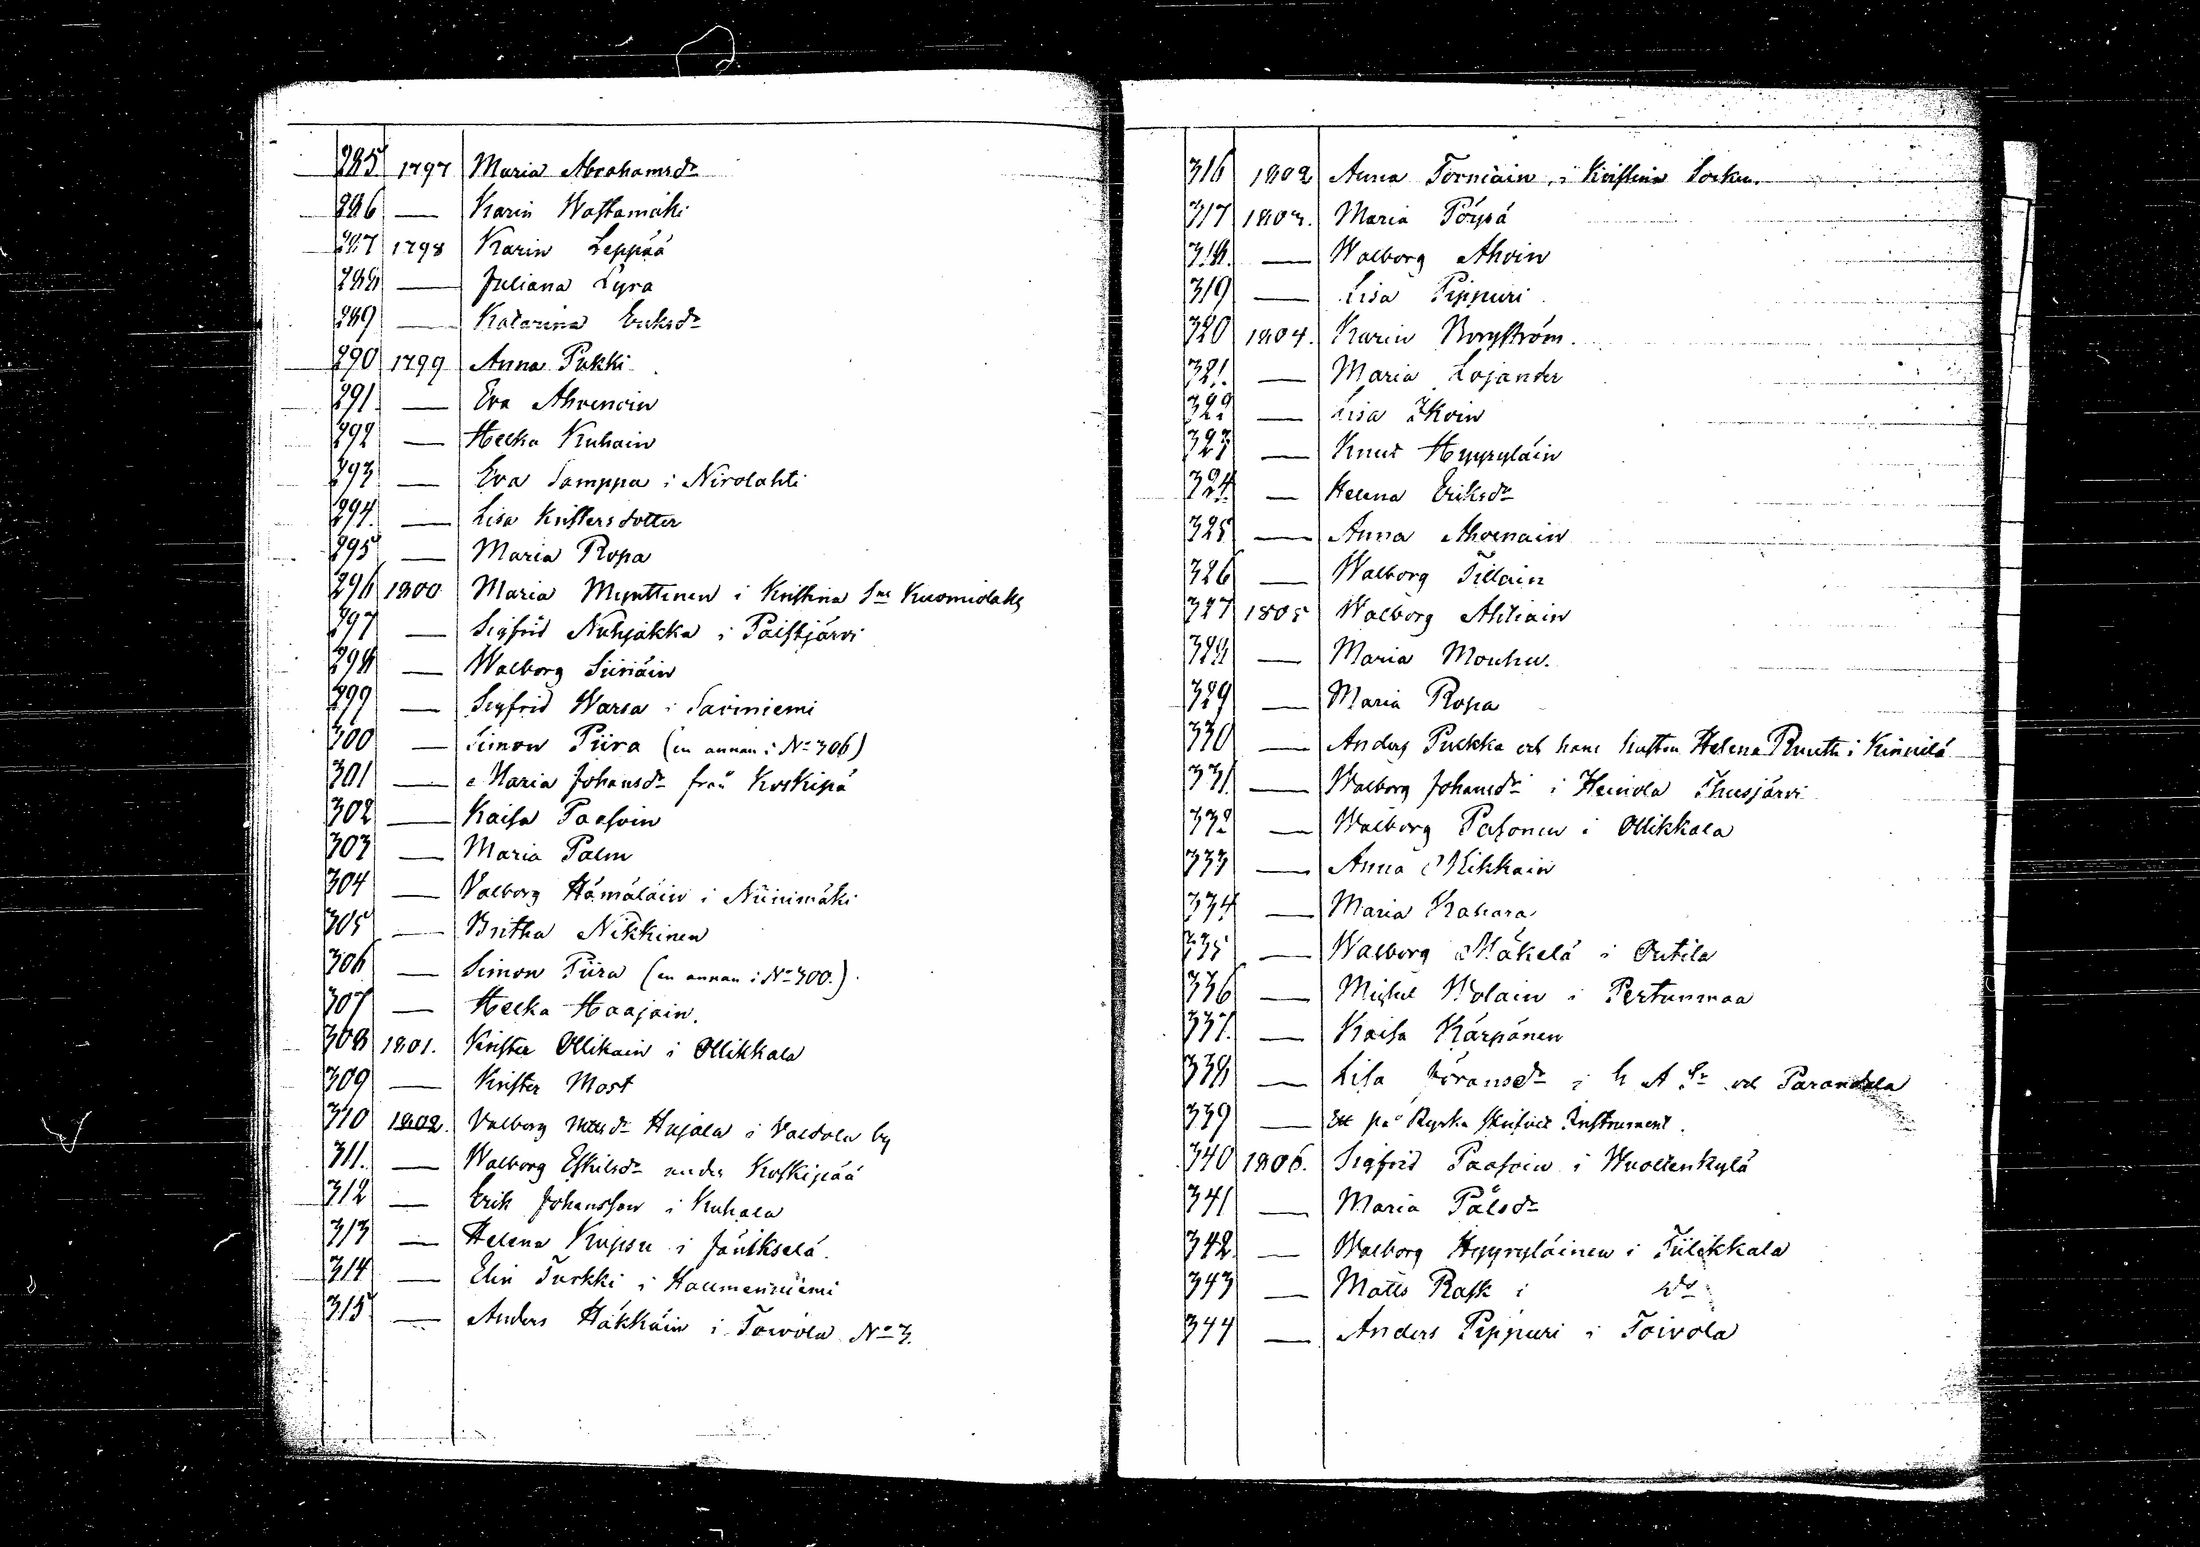 285 1797 Maria Abrahamsdr
286 — Karin Wastamäki
287 1798 Karin Leppää
288 — Juliana Lyra
289 — Katarina Eriksdr
290 1799 Anna Pukki
291. — Eva Ahvenoin
292 — Helka Kuhain
293 — Eva Samppa i Nirolahti
294. — Lisa Kristersdotter
295 — Maria Ropa
296 1800 Maria Mynttinen i Kristina Sn Kuomiolaks
297 — Sigfrid Nuhjakka i Paistjärvi
298 — Walborg Siiriäin
299 — Sigfrid Warsa i Saviniemi
300 — Simon Piira (en annan i No 306)
301 — Maria Johansdr från Koskipä
302 — Kaisa Paasoin
303 — Maria Palm
304 — Valborg Hämäläin i Niinimäki
305 — Britha Nikkinen
306 — Simon Piira (en annan i No 300.)
307 — Helka Haajain.
308 1801. Krister Ollikain i Ollikkala
309 — Krister Most
310 1802. Valborg Matsdr Hujala i Valdola by
311. — Walborg Eskilsdr under Koskipää
312 — Erik Johansson i Kuhala
313 — Helena Kupsu i Jänikselä.
314 — Elin Turkki i Hallmenniemi
315 — Anders Häkkäin i Toivola No 3.
316 1802 Anna Torniain, i Kristina Socken.
317 1803. Maria Pöysä
318. — Walborg Ahoin
319 — Lisa Pippuri
320 1804. Karin Borgström.
321. — Maria Lojander
322 — Lisa Ikoin
323 — Knut Hyyryläin
324. — Helena Eriksdr
325 — Anna Ahvenain
326 — Walborg Tillain
327 1805 Walborg Ahtiain
328 — Maria Mouhu.
329 — Maria Ropa
330 — Anders Puckka och hans hustru Helena Ruuth i Kinnilä
331. — Walborg Johansdr i Heinola Ihusjärvi
332 — Walborg Pasonen i Ollikkala
333 — Anna Mikkain
334 — Maria Kakara
335 — Walborg Mäkelä i Outila
336 — Michel Wolain i Pertunmaa
337. — Kaisa Kärpänen
338 — Lisa Göransdr i h A Sr och Parandala
339 — Ett på Ryska skrifvet Instrument.
340 1806. Sigfrid Paasoin i Wuoltenkylä
341 — Maria Pålsdr
342. — Walborg Hyyryläinen i Tiilikkala
343 — Matts Rask i do
344 — Anders Pippuri i Toivola